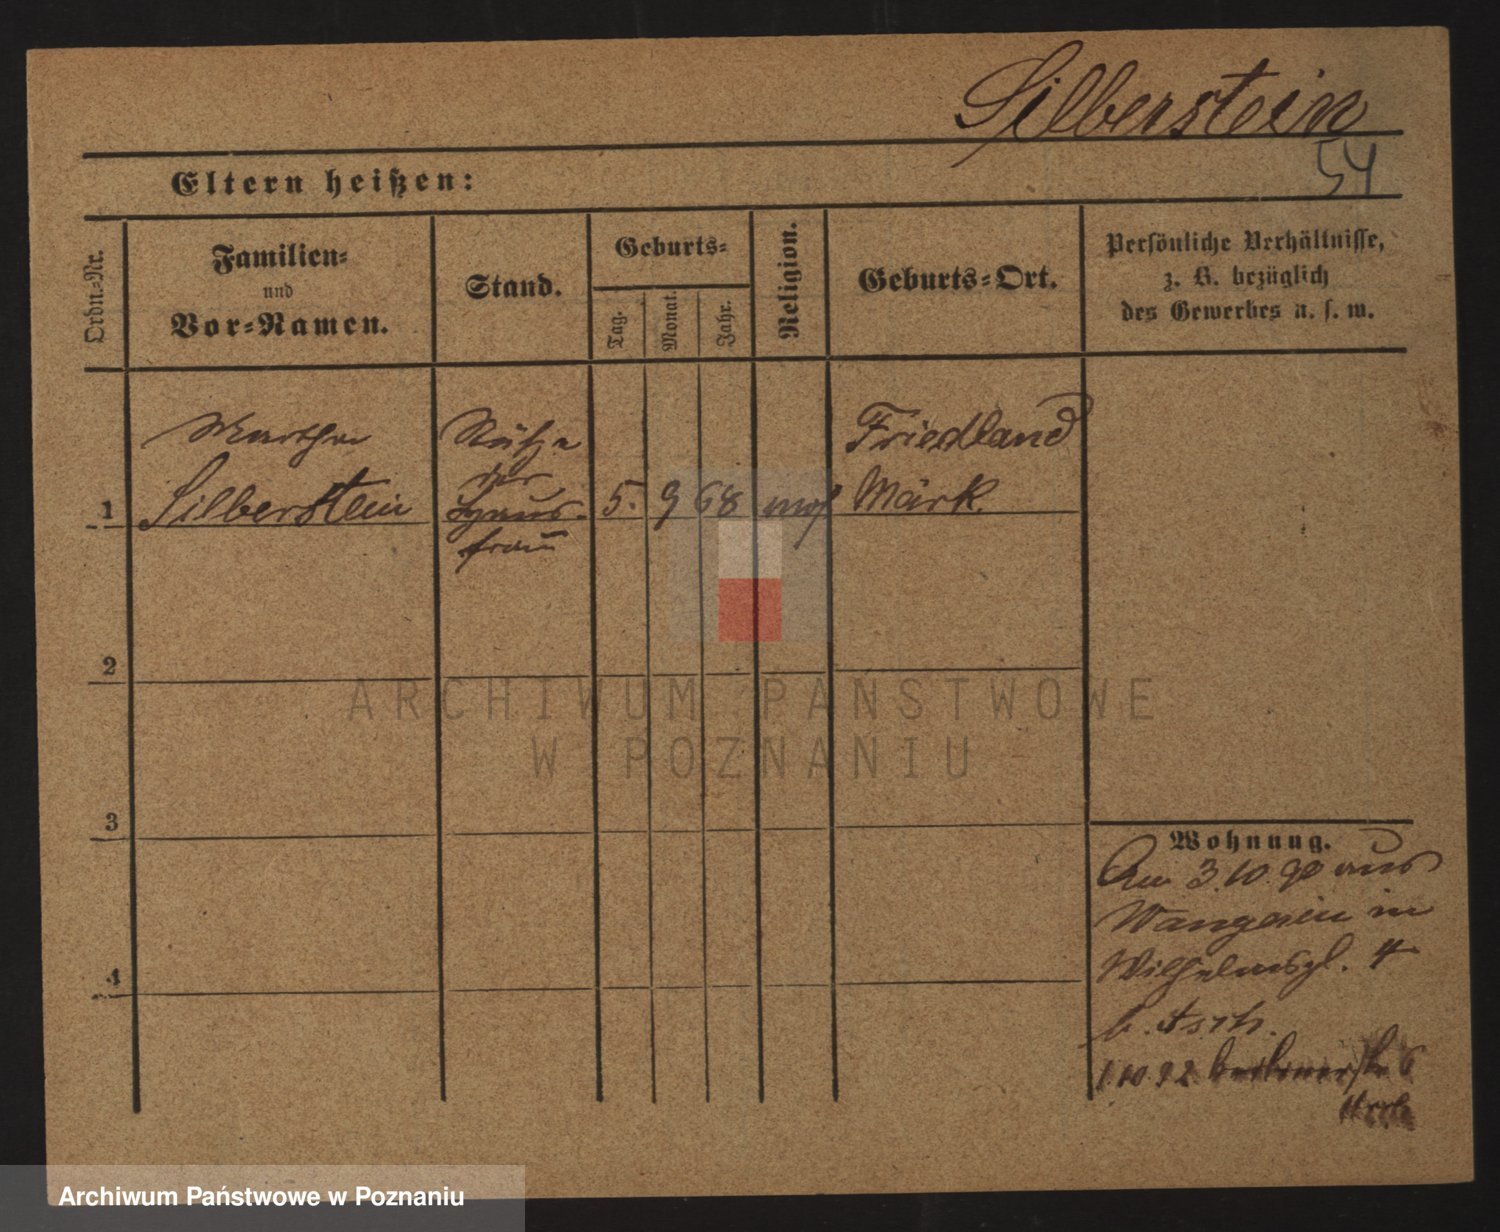 Silberstein
54
Eltern heißen:
Ordn.-Nr.
Familien-
und
Vor-Namen.
Stand.
Geburts-
Tag.
Monat.
Jahr.
Religion.
Geburts-Ort.
Persönliche Verhältnisse,
z. B. bezüglich
des Gewerbes u. s. w.
Martha
Silberstein
Stütze
der
Haus-
frau
1
5. 9 68 mos
Friedland
Märk.
2
3
4
Wohnung.
Am 3.10.90 aus
Wangerin in
Wilhelmspl. 4
b. Asch.
1.10.92 Berlinerstr 6
ARCHIWUM PAŃSTWOWE
W POZNANIU
Archiwum Państwowe w Poznaniu